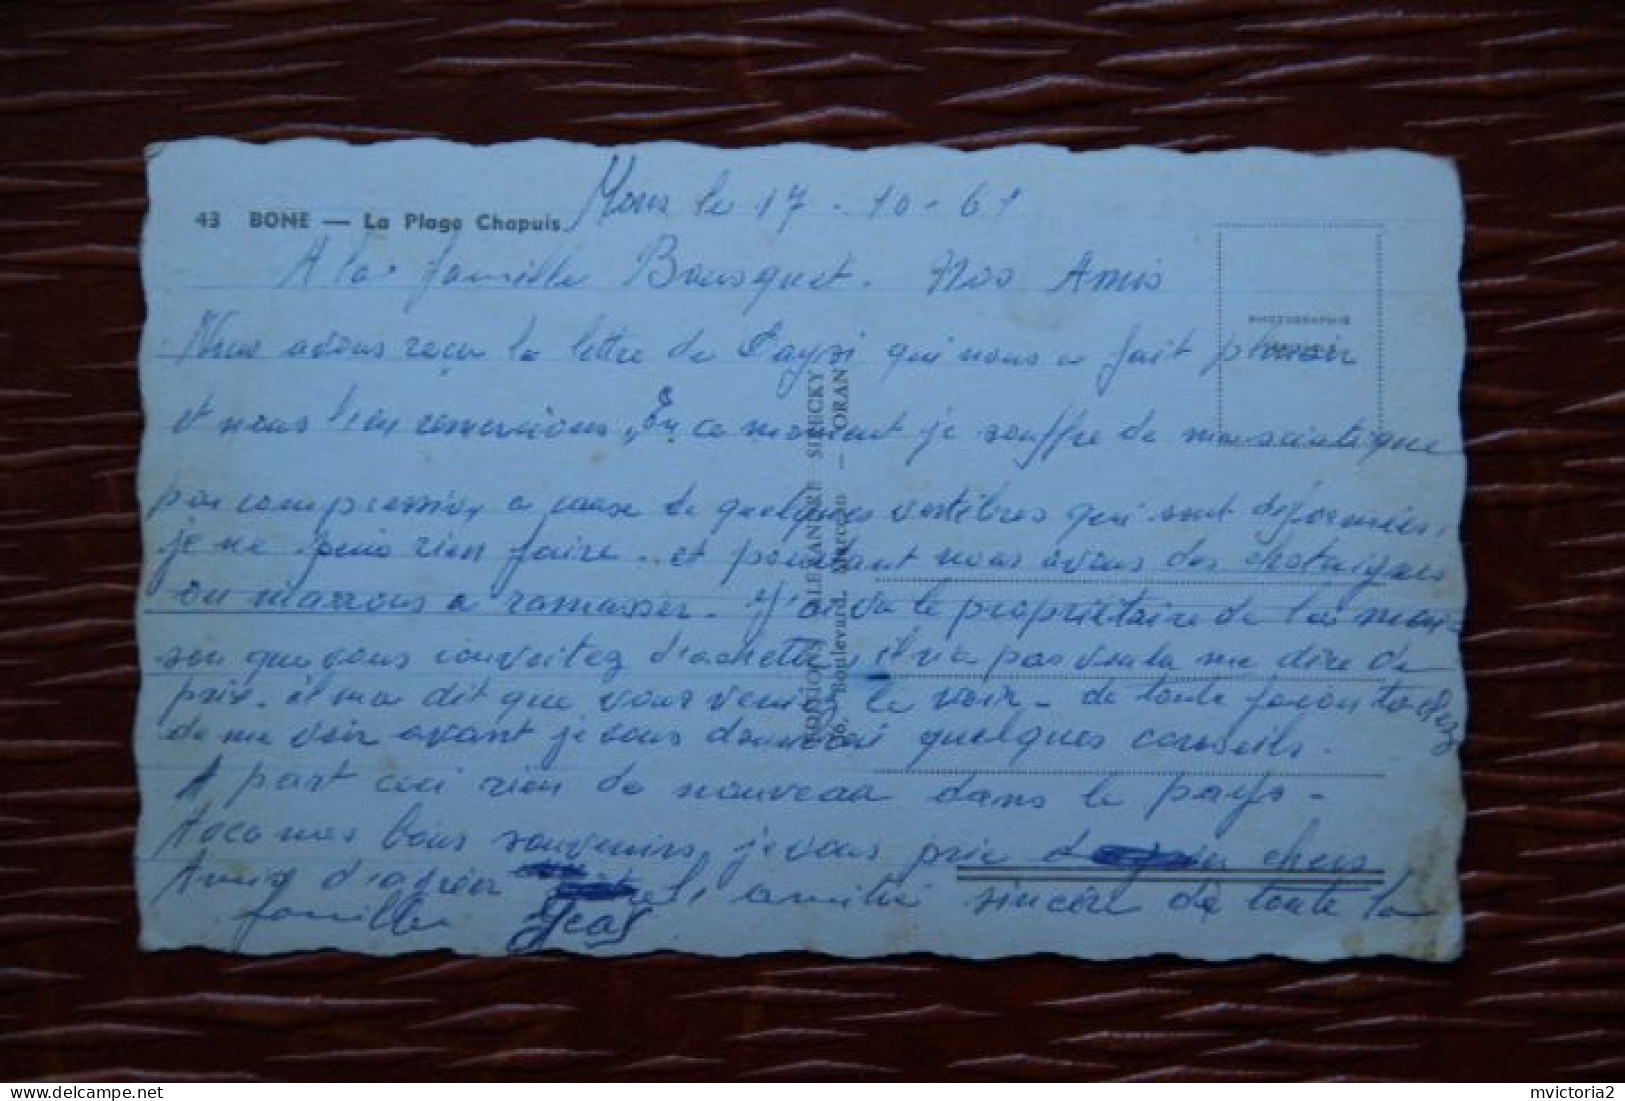 Mons le 17-10-61
43 BONE — La Plage Chapuis
A la famille Bousquet. Nos Amis
Nous avons reçu la lettre de qui nous a fait plaisir
et nous l'en remercions, En ce moment je souffre de ma sciatique
par compression a cause de quelques vertèbres qui sont déformées,
je ne puis rien faire.. et pourtant nous avons des chataignes
ou marrons a ramasser. J'ai vu le propriétaire de la mai-
son que vous convoitez d'acheter, il n'a pas voulu me dire de
prix. il m'a dit que vous veniez le voir. de toute façon tachez
de me voir avant je vous donnerai quelques conseils.
A part ceci rien de nouveau dans le pays.
Avec mes bons souvenirs, je vous prie chers
Amis d'agréer l'amitié sincère de toute la
famille
PHOTOGRAPHIE
EDITIONS ALEXANDRE SIRECKY
16, Boulevard — ORAN
mvictoria2